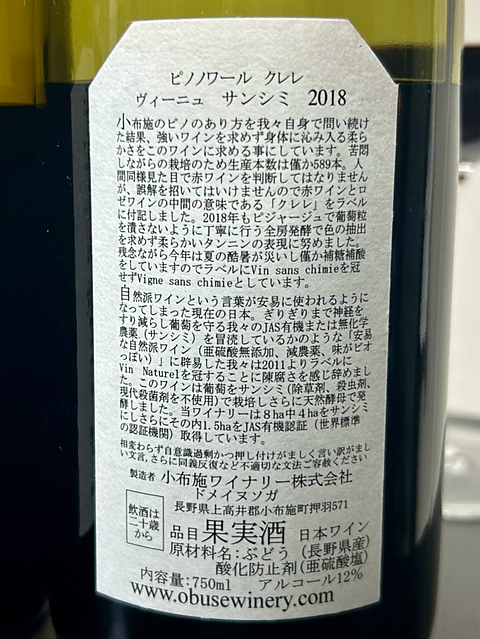 ピノノワール クレレ
ヴィーニュ サンシミ 2018
小布施のピノのあり方を我々自身で問い続け
た結果、強いワインを求めず身体に沁み入る柔ら
かさをこのワインに求める事にしています。苦悶
しながらの栽培のため生産本数は僅か589本。人
間同様見た目で赤ワインを判断してはなりません
が、誤解を招いてはいけませんので赤ワインとロ
ゼワインの中間の意味である「クレレ」をラベル
に付記しました。2018年もピジャージュで葡萄粒
を潰さないように丁寧に行う全房発酵で色の抽出
を求めず柔らかいタンニンの表現に努めました。
残念ながら今年は夏の酷暑が災いし僅か補糖補酸
をしていますのでラベルにVin sans chimieを冠
せずVigne sans chimieとしています。
自然派ワインという言葉が安易に使われるように
なってしまった現在の日本。ぎりぎりまで神経を
すり減らし葡萄を守る我々のJAS有機または無化学
農薬（サンシミ）を冒涜しているかのような「安易
な自然派ワイン（亜硫酸無添加、減農薬、味がビオ
っぽい）」に辟易した我々は2011よりラベルに
Vin Naturelを冠することに陳腐さを感じ辞めまし
た。このワインは葡萄をサンシミ（除草剤、殺虫剤、
現代殺菌剤を不使用）で栽培しさらに天然酵母で発
酵しました。当ワイナリーは８ha中４haをサンシミ
にしさらにその内1.5haをJAS有機認証（世界標準
の認証機関）取得しています。
相変わらず自意識過剰かつ押し付けがましく言い訳がまし
い文言、さらに同義反復など不適切な文法ご容赦ください
製造者 小布施ワイナリー株式会社
ドメイヌソガ
長野県上高井郡小布施町押羽571
飲酒は
二十歳
から
品目 果実酒 日本ワイン
原材料名：ぶどう（長野県産）
酸化防止剤（亜硫酸塩）
内容量：750ml アルコール12%
www.obusewinery.com